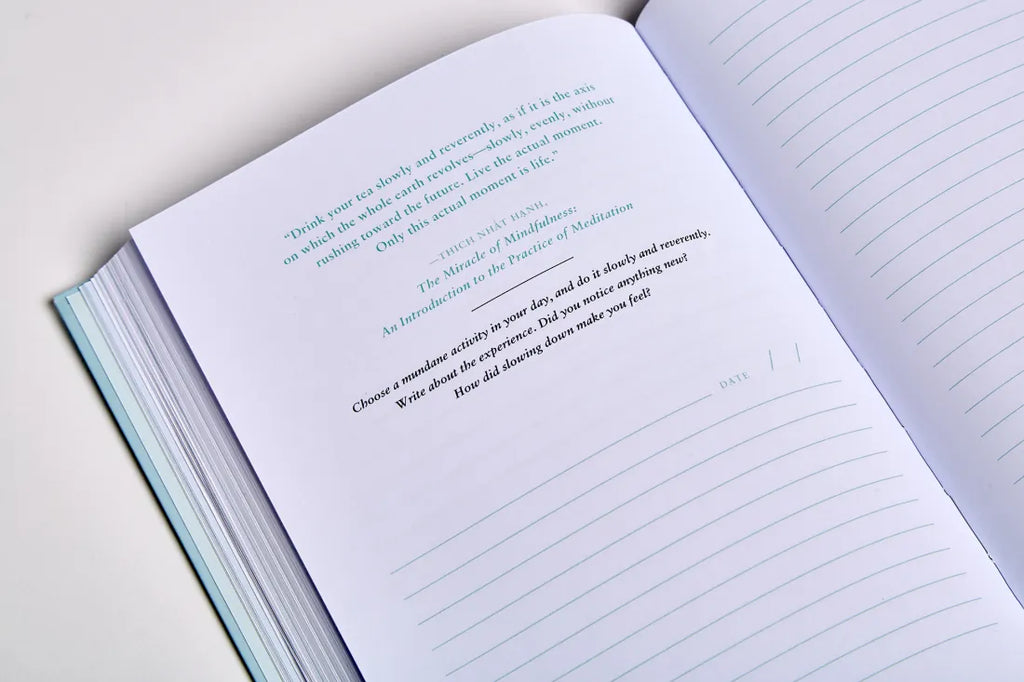 “Drink your tea slowly and reverently, as if it is the axis
on which the whole earth revolves—slowly, evenly, without
rushing toward the future. Live the actual moment.
Only this actual moment is life.”
—THICH NHÁT HANH,
The Miracle of Mindfulness:
An Introduction to the Practice of Meditation
Choose a mundane activity in your day, and do it slowly and reverently.
Write about the experience. Did you notice anything new?
How did slowing down make you feel?
DATE / /